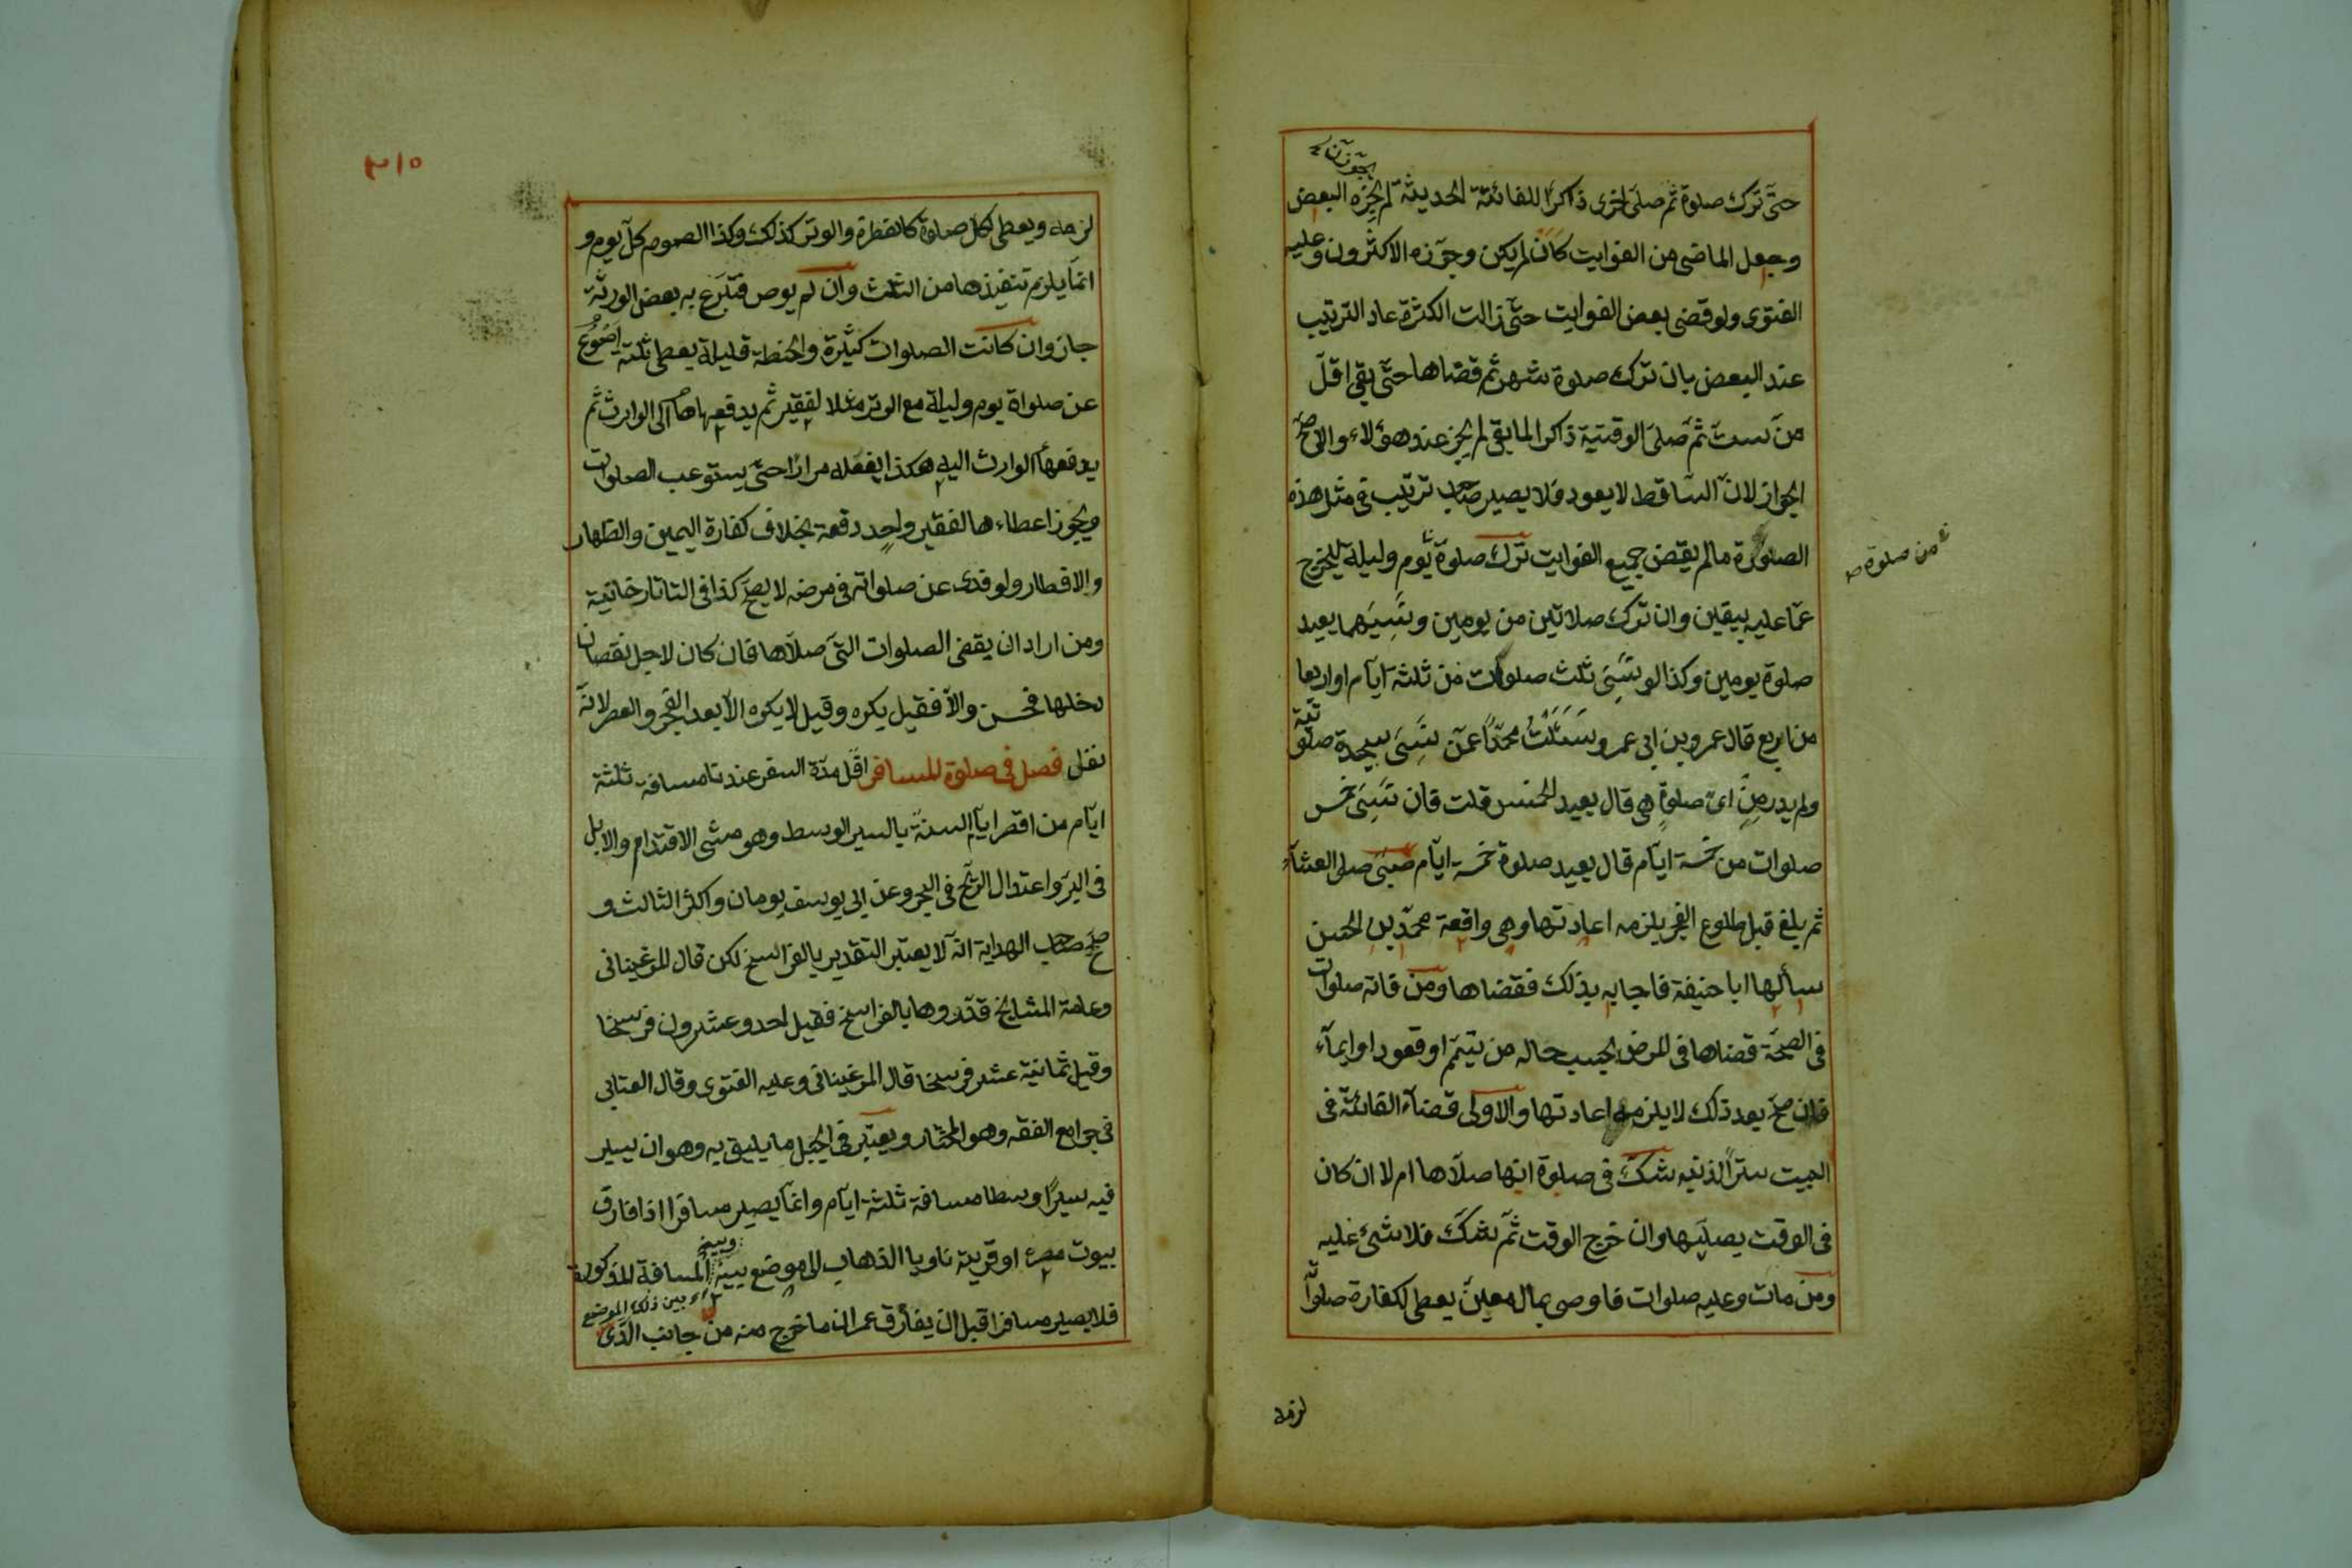 حتّى ترك صلوة ثم صلى اخرى ذاكرا للفائتة الحديثة لم يجزه البعض
وجعل الماضى من الفوايت كان لم يكن وجوّزه الاكثرون وعليه
الفتوى ولو قضى بعض الفوايت حتّى زالت الكثرة عاد الترتيب
عند البعض بان ترك صلوة شهر ثم قضاها حتّى بقى اقلّ
من ستّ ثمّ صلى الوقتية ذاكرا لما بقى لم يجز عند هؤلاء والاصحّ
الجواز لانّ الساقط لا يعود فلا يصير صاحب ترتيب فى مثل هذه
الصلوة ما لم يقض جميع الفوايت ترك صلوة يوم وليلة ليخرج
من صلوة
عمّا عليه بيقين وان ترك صلاتين من يومين ونسيهما يعيد
صلوة يومين وكذا لو نسى ثلث صلوات من ثلثة ايّام او اربعا
من اربع قال عمرو بن ابى عمرو سئلت محمّدا عمّن نسى سجدة صلوتيّة
ولم يدر من اىّ صلوة هى قال يعيد الخمس قلت فان نسى خمس
صلوات من خمسة ايّام قال يعيد صلوة خمسة ايّام صبىّ صلى العشاء
ثم بلغ قبل طلوع الفجر يلزمه اعادتها وهى واقعة محمّد بن الحسن
سألها ابا حنيفة فاجابه بذلك فقضاها ومن فاته صلوات
فى الصحّة قضاها فى المرض بحسب حاله من تيمّم او قعود او ايماء
فان صحّ بعد ذلك لا يلزمه اعادتها والاولى قضاء الفائتة فى
البيت سترا لذنبه شكّ فى صلوة انها صلّاها ام لا ان كان
فى الوقت يصلّيها وان خرج الوقت ثمّ شكّ فلا شىء عليه
ومن مات وعليه صلوات فاوصى بمال معين يعطى لكفارة صلواتٍ
لزمه
٣١٥
لزمه ويعطى لكل صلوة كالفطرة والوتر كذلك وكذا الصوم كلّ يوم و
انمّا يلزم تنفيذها من الثلث وان لم يوص فتبرّع به بعض الورثة
جاز وان كانت الصلوات كثيرة والحنطة قليلة يعطى ثلثة اصوع
عن صلواة يوم وليلة مع الوتر مثلا لفقير ثم يدفعها الى الوارث ثم
يدفعها الوارث اليه هكذا يفعله مرارا حتّى يستوعب الصلوات
ويجوز اعطاءها لفقير واحد دفعة بخلاف كفارة اليمين والظهار
والافطار ولو فدى عن صلواته فى مرضه لا يصحّ كذا فى التاتارخانية
ومن اراد ان يقضى الصلوات التى صلّاها فان كان لاجل نقصان
دخلها فحسن والّا فقيل يكره وقيل لا يكره الّا بعد الفجر والعصر لانّه
نفل فصل فى صلوة المسافر اقل مدّة السفر عندنا مسافة ثلثة
ايّام من اقصر ايّام السنة بالسير الوسط وهو مشى الاقدام والابل
فى البرّ واعتدال الرّيح فى البحر وعن ابى يوسف يومان واكثر الثالث و
صحّح صاحب الهداية انّه لا يعتبر التقدير بالفراسخ لكن قال المرغينانى
وعامّة المشايخ قدّروها بالفراسخ فقيل احد وعشرون فرسخا
وقيل ثمانية عشر فرسخا قال المرغينانى وعليه الفتوى وقال العتابى
فى جوامع الفقه وهو المختار ويعتبر فى الجبل ما يليق به وهو ان يسير
فيه سيرا وسطا مسافة ثلثة ايّام وانمّا يصير مسافرا اذا فارق
بيوت مصره او قرية ناويا الذهاب الى موضع بينه وبينه المسافة المذكورة
بين ذلك الموضع
فلا يصير مسافرا قبل ان يفارق عمران ما خرج منه من جانب الذى